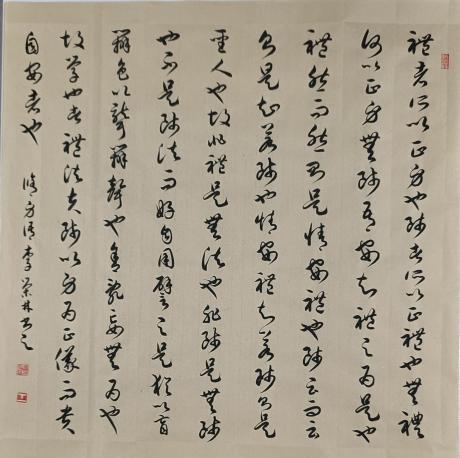 禮者所以正身也師者所以正禮也無禮
何以正身無師吾安知禮之為是也
禮然而然則是情安禮也師云而云
則是知若師也情安禮知若師則是
聖人也故非禮是無法也非師是無師
也不是師法而好自用譬之是猶以盲
辨色以聾辨聲也舍亂妄無為也
故學也者禮法夫師以身為正儀而貴
自安者也 脩身 李榮林書之